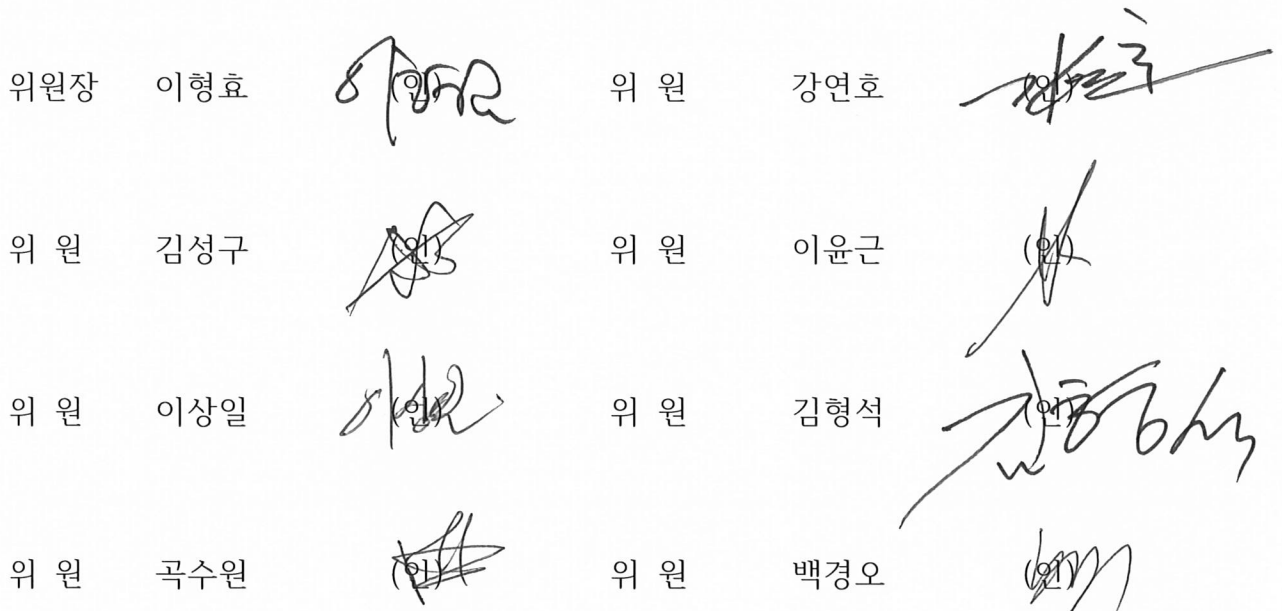 위원장 이형효 (인) 위 원 강연호 (인)
위 원 김성구 (인) 위 원 이윤근 (인)
위 원 이상일 (인) 위 원 김형석 (인)
위 원 곡수원 (인) 위 원 백경오 (인)